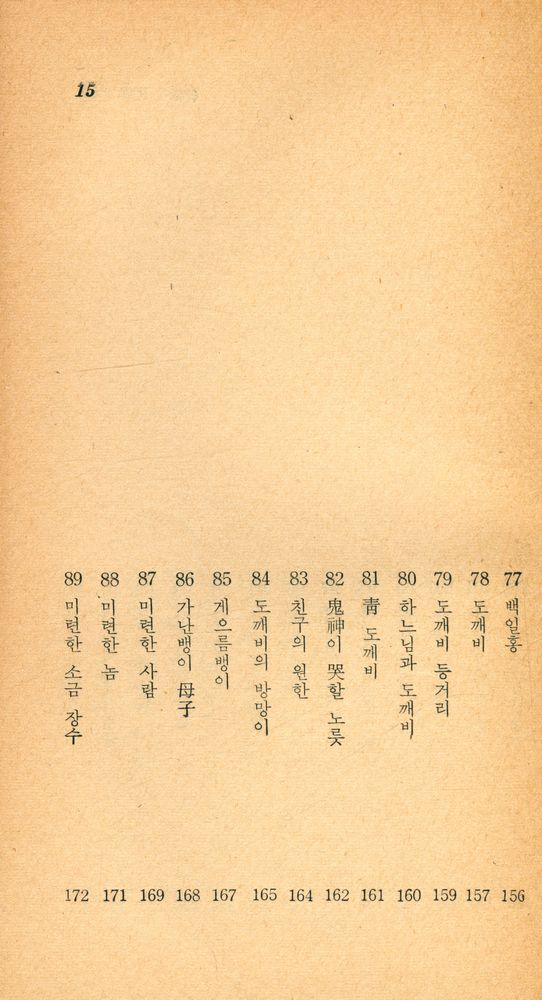 15
77 백일홍 156
78 도깨비 157
79 도깨비 등거리 159
80 하느님과 도깨비 160
81 靑 도깨비 161
82 鬼神이 哭할 노릇 162
83 친구의 원한 164
84 도깨비의 방망이 165
85 게으름뱅이 167
86 가난뱅이 母子 168
87 미련한 사람 169
88 미련한 놈 171
89 미련한 소금 장수 172